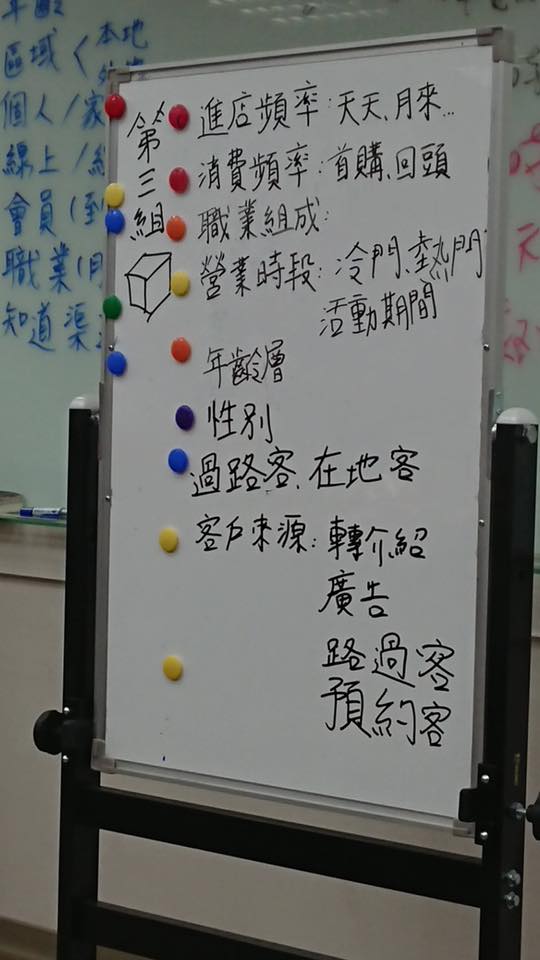 第三組
進店頻率:天天、月來...
消費頻率:首購、回頭
職業組成:
營業時段:冷門、熱門
活動期間
年齡層
性別
過路客、在地客
客戶來源:轉介紹
廣告
路過客
預約客
年齡
區域 < 本地
個人/家
線上/
會員(到
職業(月
知道渠